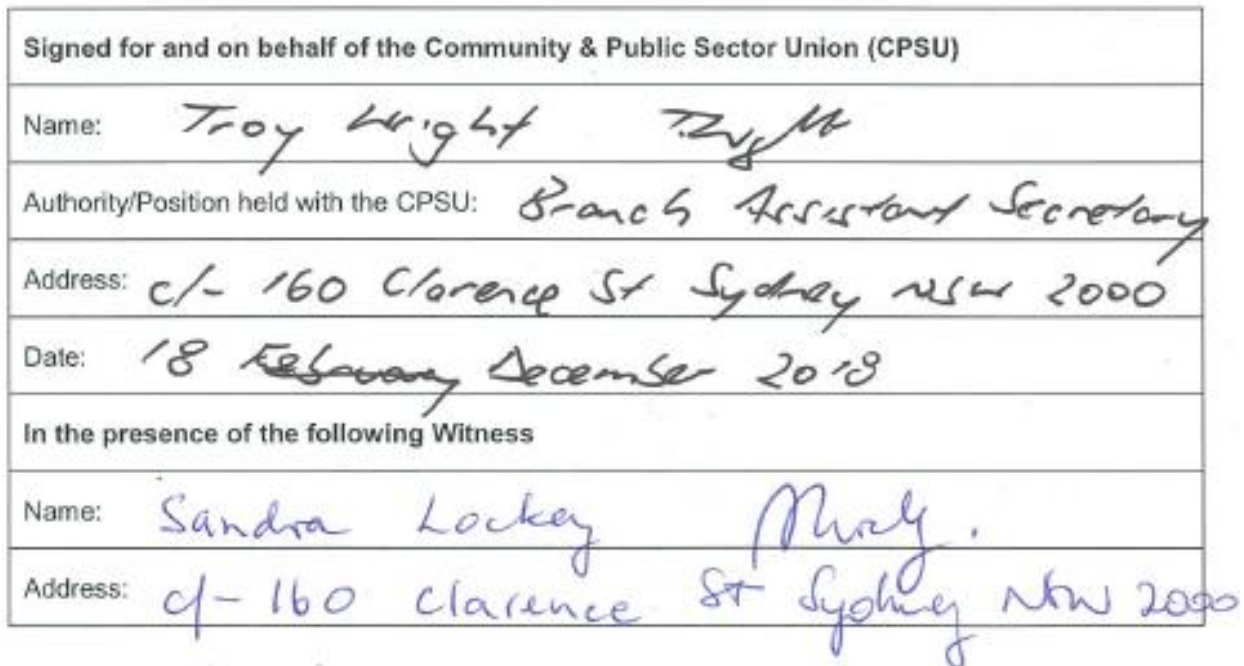 Signed for and on behalf of the Community & Public Sector Union (CPSU)
Name: Troy Wright
Authority/Position held with the CPSU: Branch Assistant Secretary
Address: c/- 160 Clarence St Sydney NSW 2000
Date: 18 February December 2018
In the presence of the following Witness
Name: Sandra Lockey
Address: c/- 160 Clarence St Sydney NSW 2000